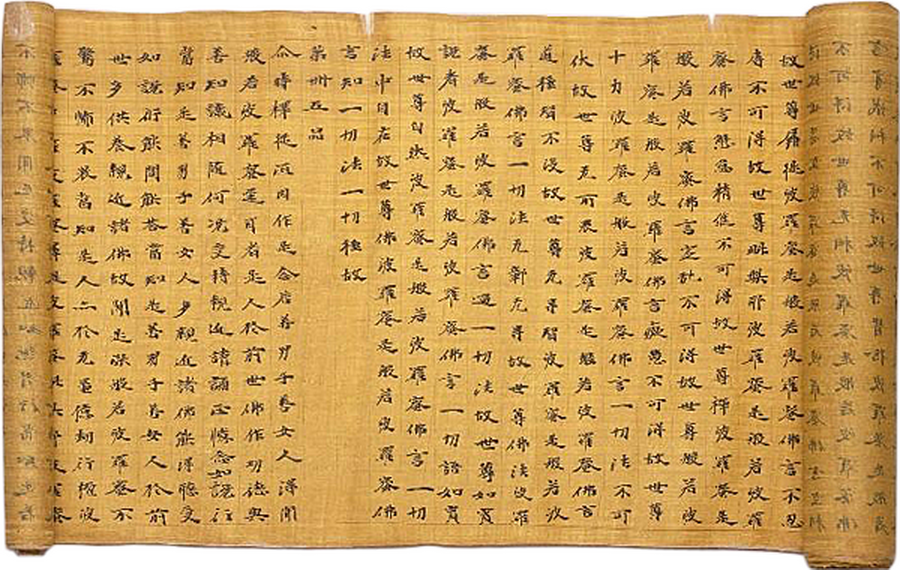 故世尊羼提波羅蜜是般若波羅蜜佛言不忍
辱不可得故世尊毗梨耶波羅蜜是般若波羅
蜜佛言懈怠精進不可得故世尊禪波羅蜜是
般若波羅蜜佛言定亂不可得故世尊般若波
羅蜜是般若波羅蜜佛言癡惠不可得故世尊
十力波羅蜜是般若波羅蜜佛言一切法不可
伏故世尊无所畏波羅蜜是般若波羅蜜佛言
道種智不沒故世尊无导智波羅蜜是般若波
羅蜜佛言一切法无鄣无导故世尊佛法波羅
蜜是般若波羅蜜佛言過一切法故世尊如實
說者波羅蜜是般若波羅蜜佛言一切語如實
故世尊自然波羅蜜是般若波羅蜜佛言一切
法中自在故世尊佛波羅蜜是般若波羅蜜佛
言知一切法一切種故
第卌五品
尒時釋提桓因作是念若善男子善女人得聞
般若波羅蜜逕耳者是人於前世佛作功德與
善知識相隨何況受持親近讀誦正憶念如說行
當知是善男子善女人多親近諸佛能得聽受
如說行能問能荅當知是善男子善女人於前
世多供養親近諸佛故聞是深般若波羅蜜不
驚不怖不畏當知是人亦於无量億劫行檀波